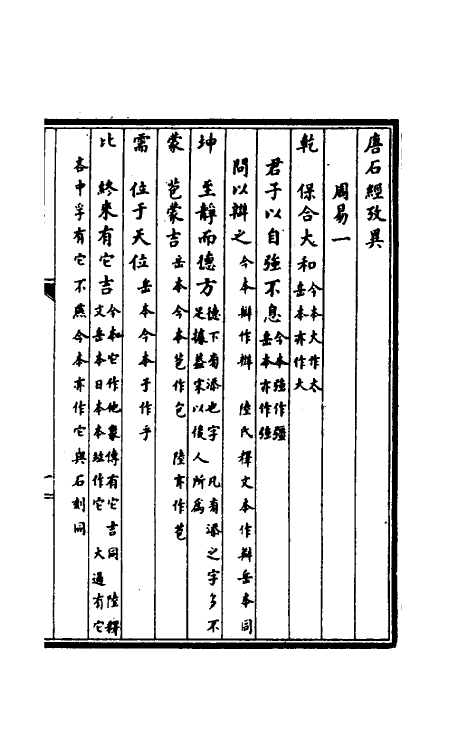 唐石經攷異
周易一
乾　保合大和今本大作太岳本亦作大
君子以自強不息今本強作彊岳本亦作強
問以辯之今本辯作辨　陸氏釋文本作辯岳本同
坤　至靜而德方德下有添也字　凡有添之字多不足據蓋宋以後人所爲
蒙　苞蒙吉岳本今本苞作包　陸亦作苞
需　位于天位岳本今本于作乎
比　終來有它吉今本它作他象傳有它吉同　陸釋文岳本日本本竝作它　大過有它
吝中孚有它不燕今本亦作它與石刻同